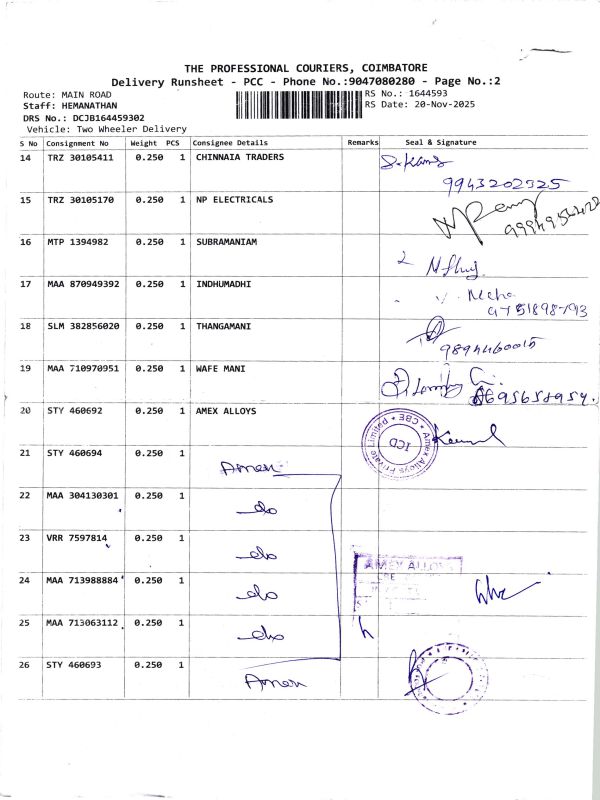 THE PROFESSIONAL COURIERS, COIMBATORE
Delivery Runsheet - PCC - Phone No.:9047080280 - Page No.:2
Route: MAIN ROAD RS No.: 1644593
Staff: HEMANATHAN RS Date: 20-Nov-2025
DRS No.: DCJB164459302
Vehicle: Two Wheeler Delivery
S No Consignment No Weight PCS Consignee Details Remarks Seal & Signature
14 TRZ 30105411 0.250 1 CHINNAIA TRADERS
9943202325
15 TRZ 30105170 0.250 1 NP ELECTRICALS
16 MTP 1394982 0.250 1 SUBRAMANIAM
17 MAA 870949392 0.250 1 INDHUMADHI
18 SLM 382856020 0.250 1 THANGAMANI
19 MAA 710970951 0.250 1 WAFE MANI
20 STY 460692 0.250 1 AMEX ALLOYS
Amex Alloys Private Limited CBE
ICD
21 STY 460694 0.250 1 Amex
22 MAA 304130301 0.250 1 do
23 VRR 7597814 0.250 1 do
AMEX ALLOYS
24 MAA 713988884 0.250 1 do
25 MAA 713063112 0.250 1 do
26 STY 460693 0.250 1 Amex